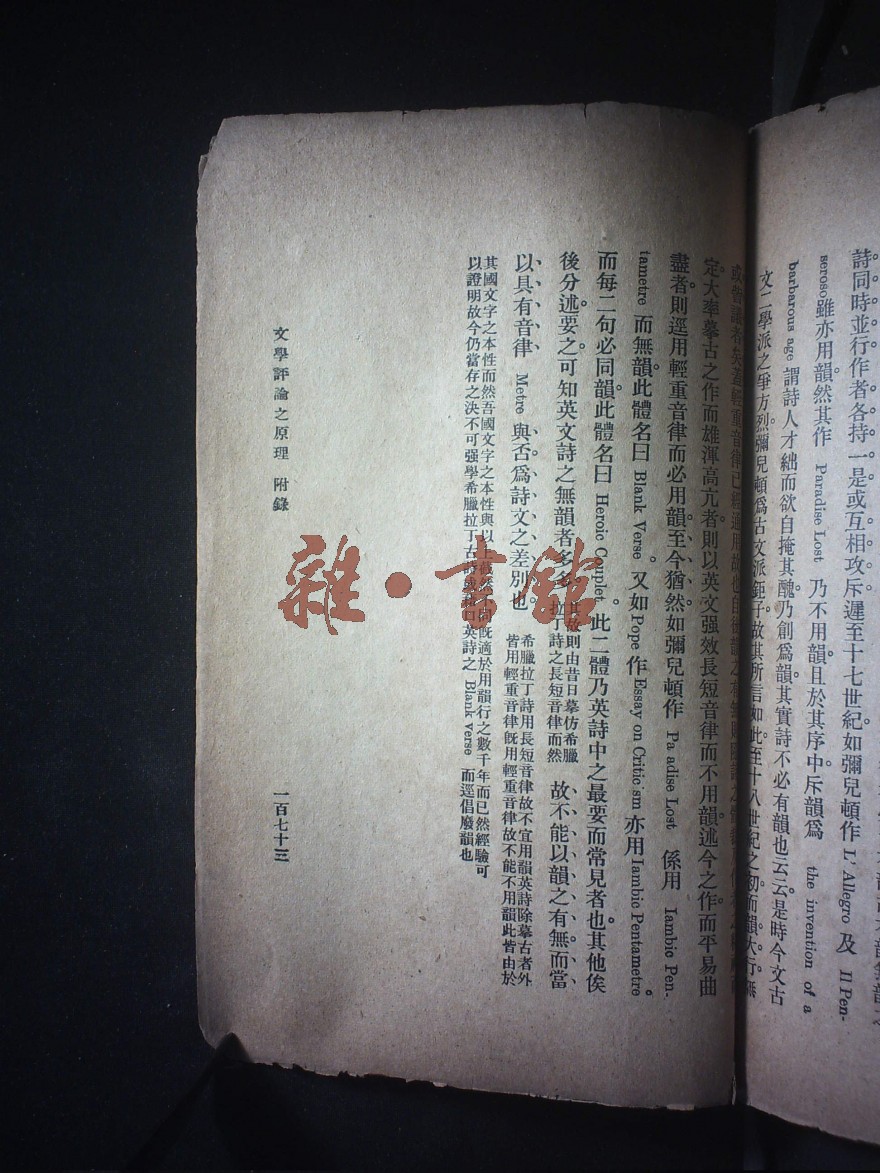 詩同時並行作者各持一是或互相攻斥遲至十七世紀如彌兒頓作 L' Allegro 及 Il Pen-
seroso 雖亦用韻然其作 Paradise Lost 乃不用韻且於其序中斥韻爲 the invention of a
barbarous age 謂詩人才絀而欲自掩其醜乃創爲韻其實詩不必有韻也云云是時今文古
文二學派之爭方烈彌兒頓爲古文派鉅子故其所言如此至十八世紀之初而韻大行無
定大率摹古之作而雄渾高亢者則以英文强效長短音律而不用韻述今之作而平易曲
盡者則逕用輕重音律而必用韻至今猶然如彌兒頓作 Pa adise Lost 係用 Iambic Pen-
tametre 而無韻此體名曰 Blank Verse。又如 Pope 作 Essay on Critic sm 亦用 Iambic Pentametre。
而每二句必同韻此體名曰 Heroic Couplet。此二體乃英詩中之最要而常見者也其他俟
後分述要之可知英文詩之無韻者多多
其故則由昔日摹仿希臘
拉丁詩之長短音律而然
故不能以韻之有無而當
以具有音律 Metre 與否爲詩文之差別也
希臘拉丁詩用長短音律故不宜用韻英詩除摹古者外
皆用輕重音律旣用輕重音律故不能不用韻此皆由於
其國文字之本性而然吾國文字之本性與以上截然不同旣適於用韻行之數千年而已然經驗可
以證明故今仍當存之決不可强學希臘拉丁古詩或藉口英詩之 Blank verse 而逕倡廢韻也
文學評論之原理 附錄
一百七十三
雜·書館